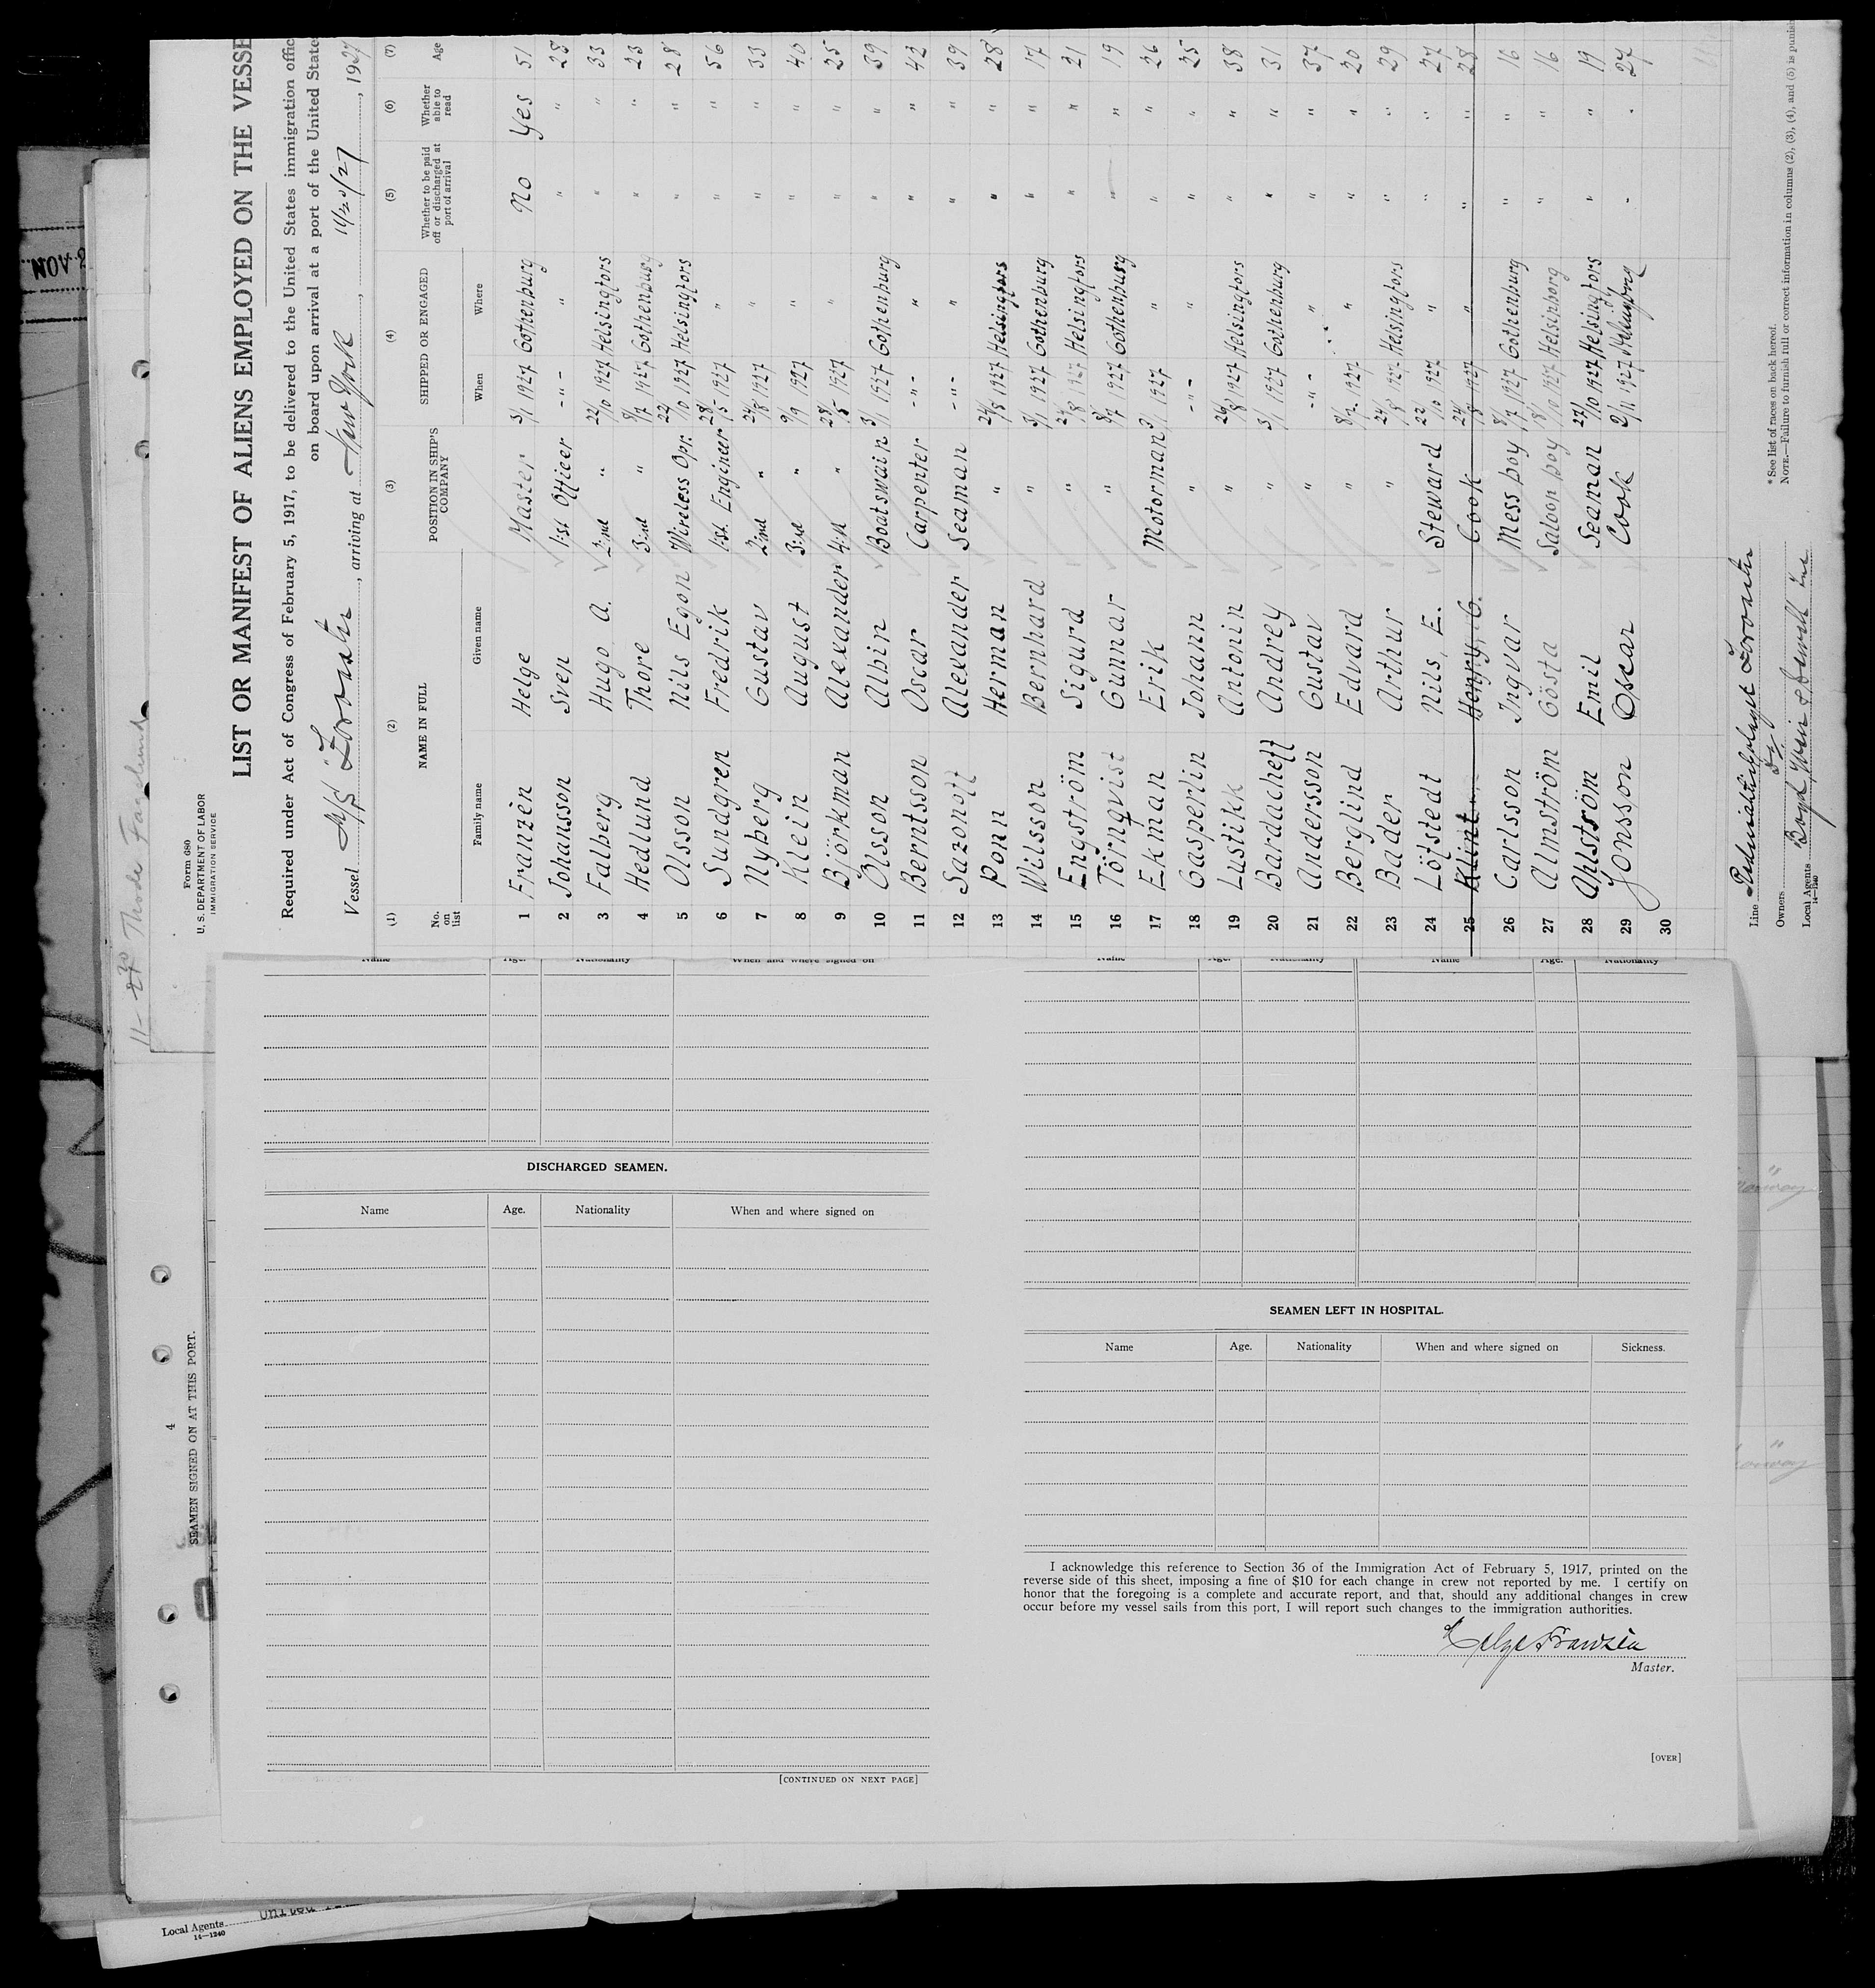 11-30 Thode Fagelund
Form 680
U. S. DEPARTMENT OF LABOR
IMMIGRATION SERVICE
LIST OR MANIFEST OF ALIENS EMPLOYED ON THE VESSE
Required under Act of Congress of February 5, 1917, to be delivered to the United States immigration offic
on board upon arrival at a port of the United State
Vessel M/S, arriving at New York, 11/20/27, 1927
(1) (2) (3) (4) (5) (6) (7)
No. on list NAME IN FULL POSITION IN SHIP'S COMPANY SHIPPED OR ENGAGED Whether to be paid off or discharged at port of arrival Whether able to read Age
Family name Given name When Where
1 Franzèn Helge Master 3/1 1927 Gothenburg No Yes 51
2 Johansson Sven 1:st Officer -"- " " " 28
3 Falberg Hugo A. 2:nd " 22/10 1927 Helsingfors " " 33
4 Hedlund Thore 3:rd " 8/7 1927 Gothenburg " " 23
5 Olsson Nils Egon Wireless Opr. 22/10 1927 Helsingfors " " 28
6 Sundgren Fredrik 1:st. Engineer 28/5 1927 " " " 56
7 Nyberg Gustav 2:nd " 24/8 1927 " " " 33
8 Klein August 3:rd " 9/9 1927 " " " 40
9 Björkman Alexander 4:th " 28/5 1927 " " " 25
10 Olsson Albin Boatswain 3/1 1927 Gothenburg " " 39
11 Berntsson Oscar Carpenter -"- " " " 42
12 Sazonoff Alexander Seaman -"- " " " 39
13 Ponn Herman " 24/8 1927 Helsingfors " " 28
14 Wilsson Bernhard " 3/1 1927 Gothenburg " " 17
15 Engström Sigurd " 24/8 1927 Helsingfors " " 21
16 Törnqvist Gunnar " 8/7 1927 Gothenburg " " 19
17 Ekman Erik Motorman 3/1 1927 " " " 26
18 Gasperlin Johann " -"- " " " 25
19 Lustikk Antonin " 26/8 1927 Helsingfors " " 38
20 Bardacheff Andrey " 3/1 1927 Gothenburg " " 31
21 Andersson Gustav " -"- " " " 37
22 Berglind Edvard " 8/7 1927 " " " 20
23 Bader Arthur " 24/8 1927 Helsingfors " " 29
24 Löfstedt Nils, E. Steward 22/10 1927 " " " 27
25 Klint Henry, G. Cook 24/8 1927 " " " 28
26 Carlsson Ingvar Mess boy 8/7 1927 Gothenburg " " 16
27 Almström Gösta Saloon boy 18/10 1927 Helsinborg " " 16
28 Ahlström Emil Seaman 22/10 1927 Helsingfors " " 19
29 Jonsson Oscar Cook 2/11 1927 " " 27
30
Line
Owners
Local Agents Boyd, Weir & Sewell Inc
14—1240
* See list of races on back hereof.
NOTE.—Failure to furnish full or correct information in columns (2), (3), (4), and (5) is punish
4
SEAMEN SIGNED ON AT THIS PORT.
Name Age. Nationality When and where signed on
DISCHARGED SEAMEN.
Name Age. Nationality When and where signed on
[CONTINUED ON NEXT PAGE]
Name Age. Nationality Name Age. Nationality
SEAMEN LEFT IN HOSPITAL.
Name Age. Nationality When and where signed on Sickness.
I acknowledge this reference to Section 36 of the Immigration Act of February 5, 1917, printed on the
reverse side of this sheet, imposing a fine of $10 for each change in crew not reported by me. I certify on
honor that the foregoing is a complete and accurate report, and that, should any additional changes in crew
occur before my vessel sails from this port, I will report such changes to the immigration authorities.
Helge Franzén
Master.
[OVER]
Local Agents
14—1240
NOV